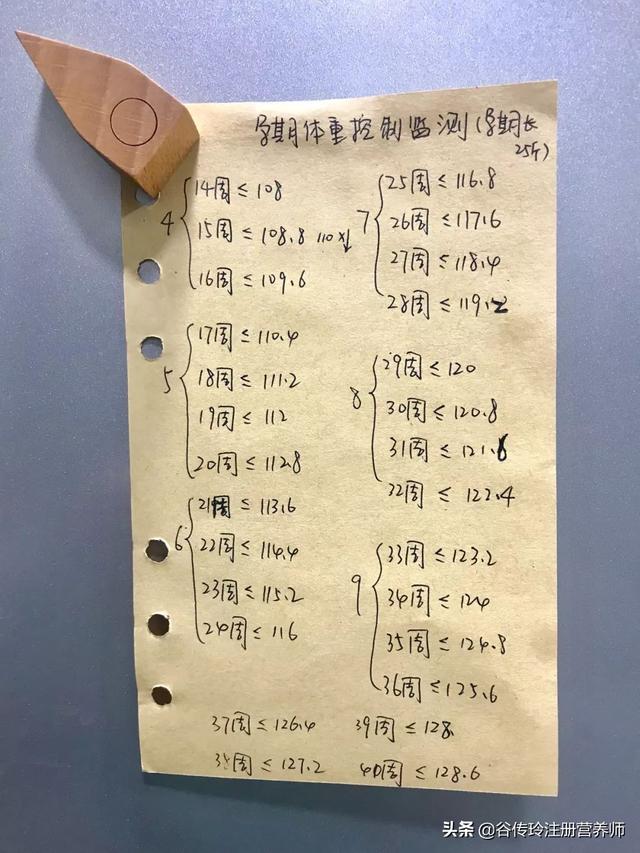 孕期体重控制监测(孕期长
25斤)
4
14周 ≤ 108
15周 ≤ 108.8 110
16周 ≤ 109.6
5
17周 ≤ 110.4
18周 ≤ 111.2
19周 ≤ 112
20周 ≤ 112.8
6
21周 ≤ 113.6
22周 ≤ 114.4
23周 ≤ 115.2
24周 ≤ 116
7
25周 ≤ 116.8
26周 ≤ 117.6
27周 ≤ 118.4
28周 ≤ 119.2
8
29周 ≤ 120
30周 ≤ 120.8
31周 ≤ 121.6
32周 ≤ 122.4
9
33周 ≤ 123.2
34周 ≤ 124
35周 ≤ 124.8
36周 ≤ 125.6
37周 ≤ 126.4 39周 ≤ 128.
38周 ≤ 127.2 40周 ≤ 128.6
头条 @谷传玲注册营养师